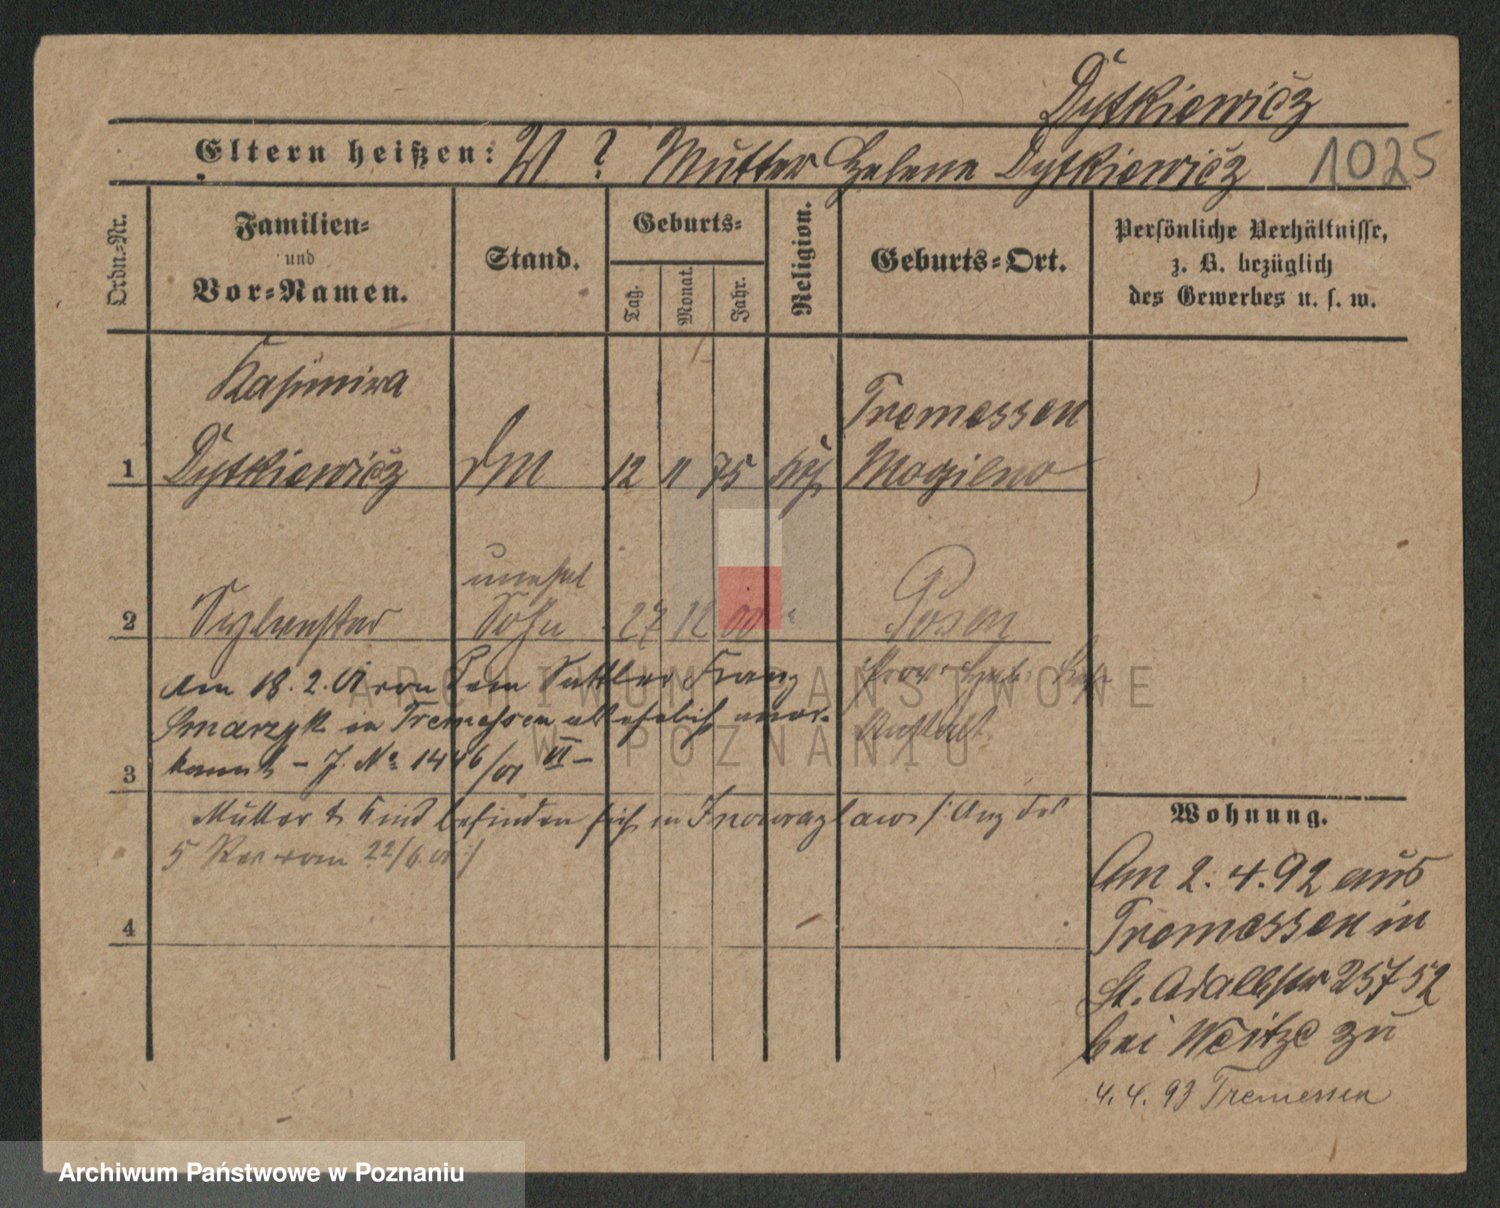 Dytkiewicz
Eltern heißen: V ? Mutter Helene Dytkiewicz 1025
Ordn.-Nr.
Familien- und Vor-Namen.
Stand.
Geburts-
Tag.
Monat.
Jahr.
Religion.
Geburts-Ort.
Persönliche Verhältnisse, z. B. bezüglich des Gewerbes u. s. w.
Kasimira
Tremessen
1 Dytkiewicz dM 12 11 75 kth Mogilno
unehel
2 Sylvester Sohn 27 12 00 Posen
Am 18.2.01 von dem Sattler Franz
Smarzyk in Tremessen als ehelich aner-
3 kannt – J. No 1446/01 VI –
Prov. Heb.
Anstalt
Mutter & Kind befinden sich in Inowrazlaw /: Anz des
5 Rev vom 22/6 01 :/
4
Wohnung.
Am 2.4.92 aus
Tremessen in
St. Adalbstr 257 52
bei Weitze zu
4. 4. 93 Tremessen
ARCHIWUM PAŃSTWOWE
W POZNANIU
Archiwum Państwowe w Poznaniu